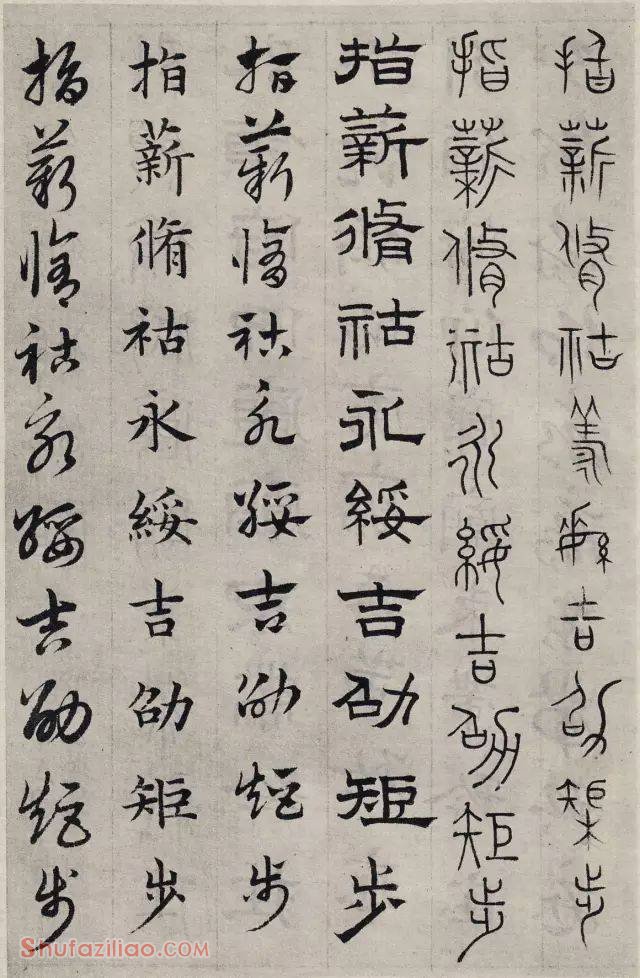 指薪脩祜永綏吉劭矩步
指薪脩祜永綏吉劭矩步
指薪脩祜永綏吉劭矩步
指薪脩祜永綏吉劭矩步
指薪脩祜永綏吉劭矩步
指薪脩祜永綏吉劭矩步
Shufaziliao.COM